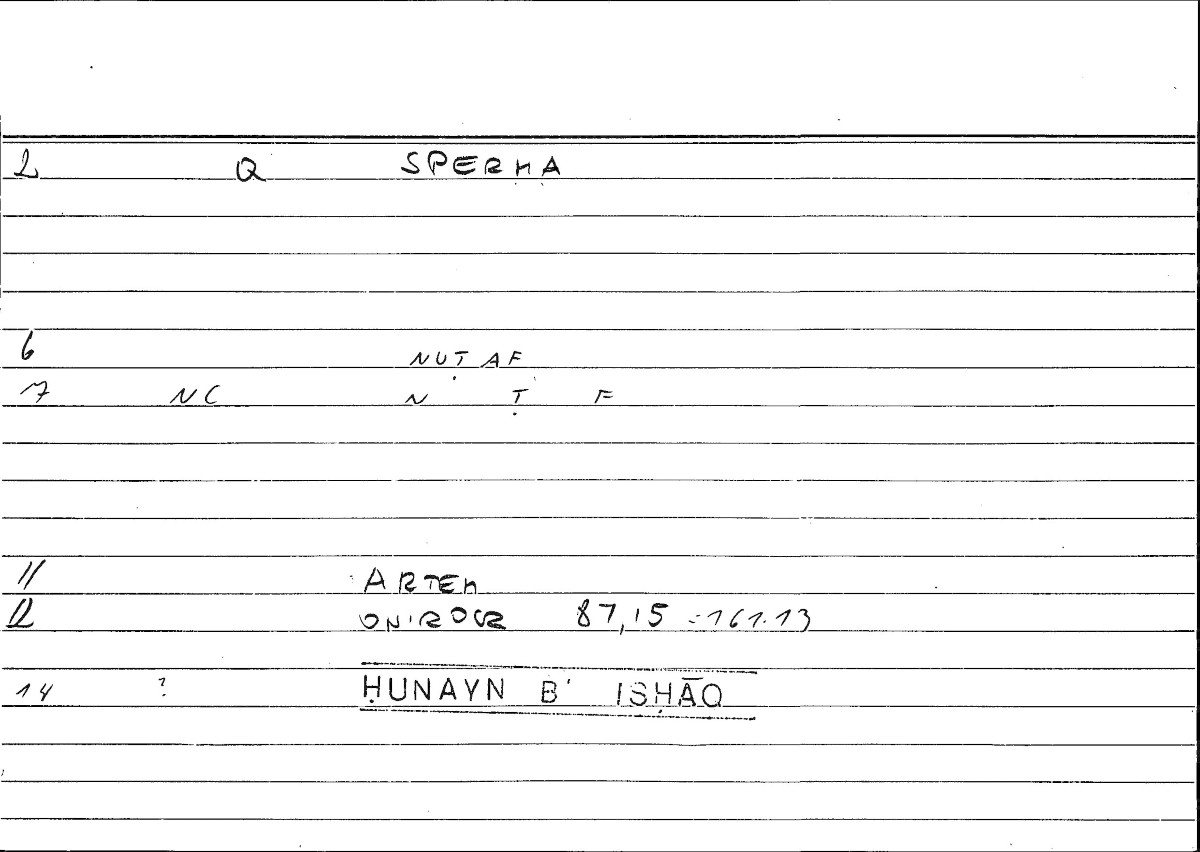 2 Q SPERMA
6 NUṬAF
7 NC N Ṭ F
11 ARTEM
12 ONIROCR 87,15 = 161.13
14 ? ḤUNAYN B' ISḤĀQ